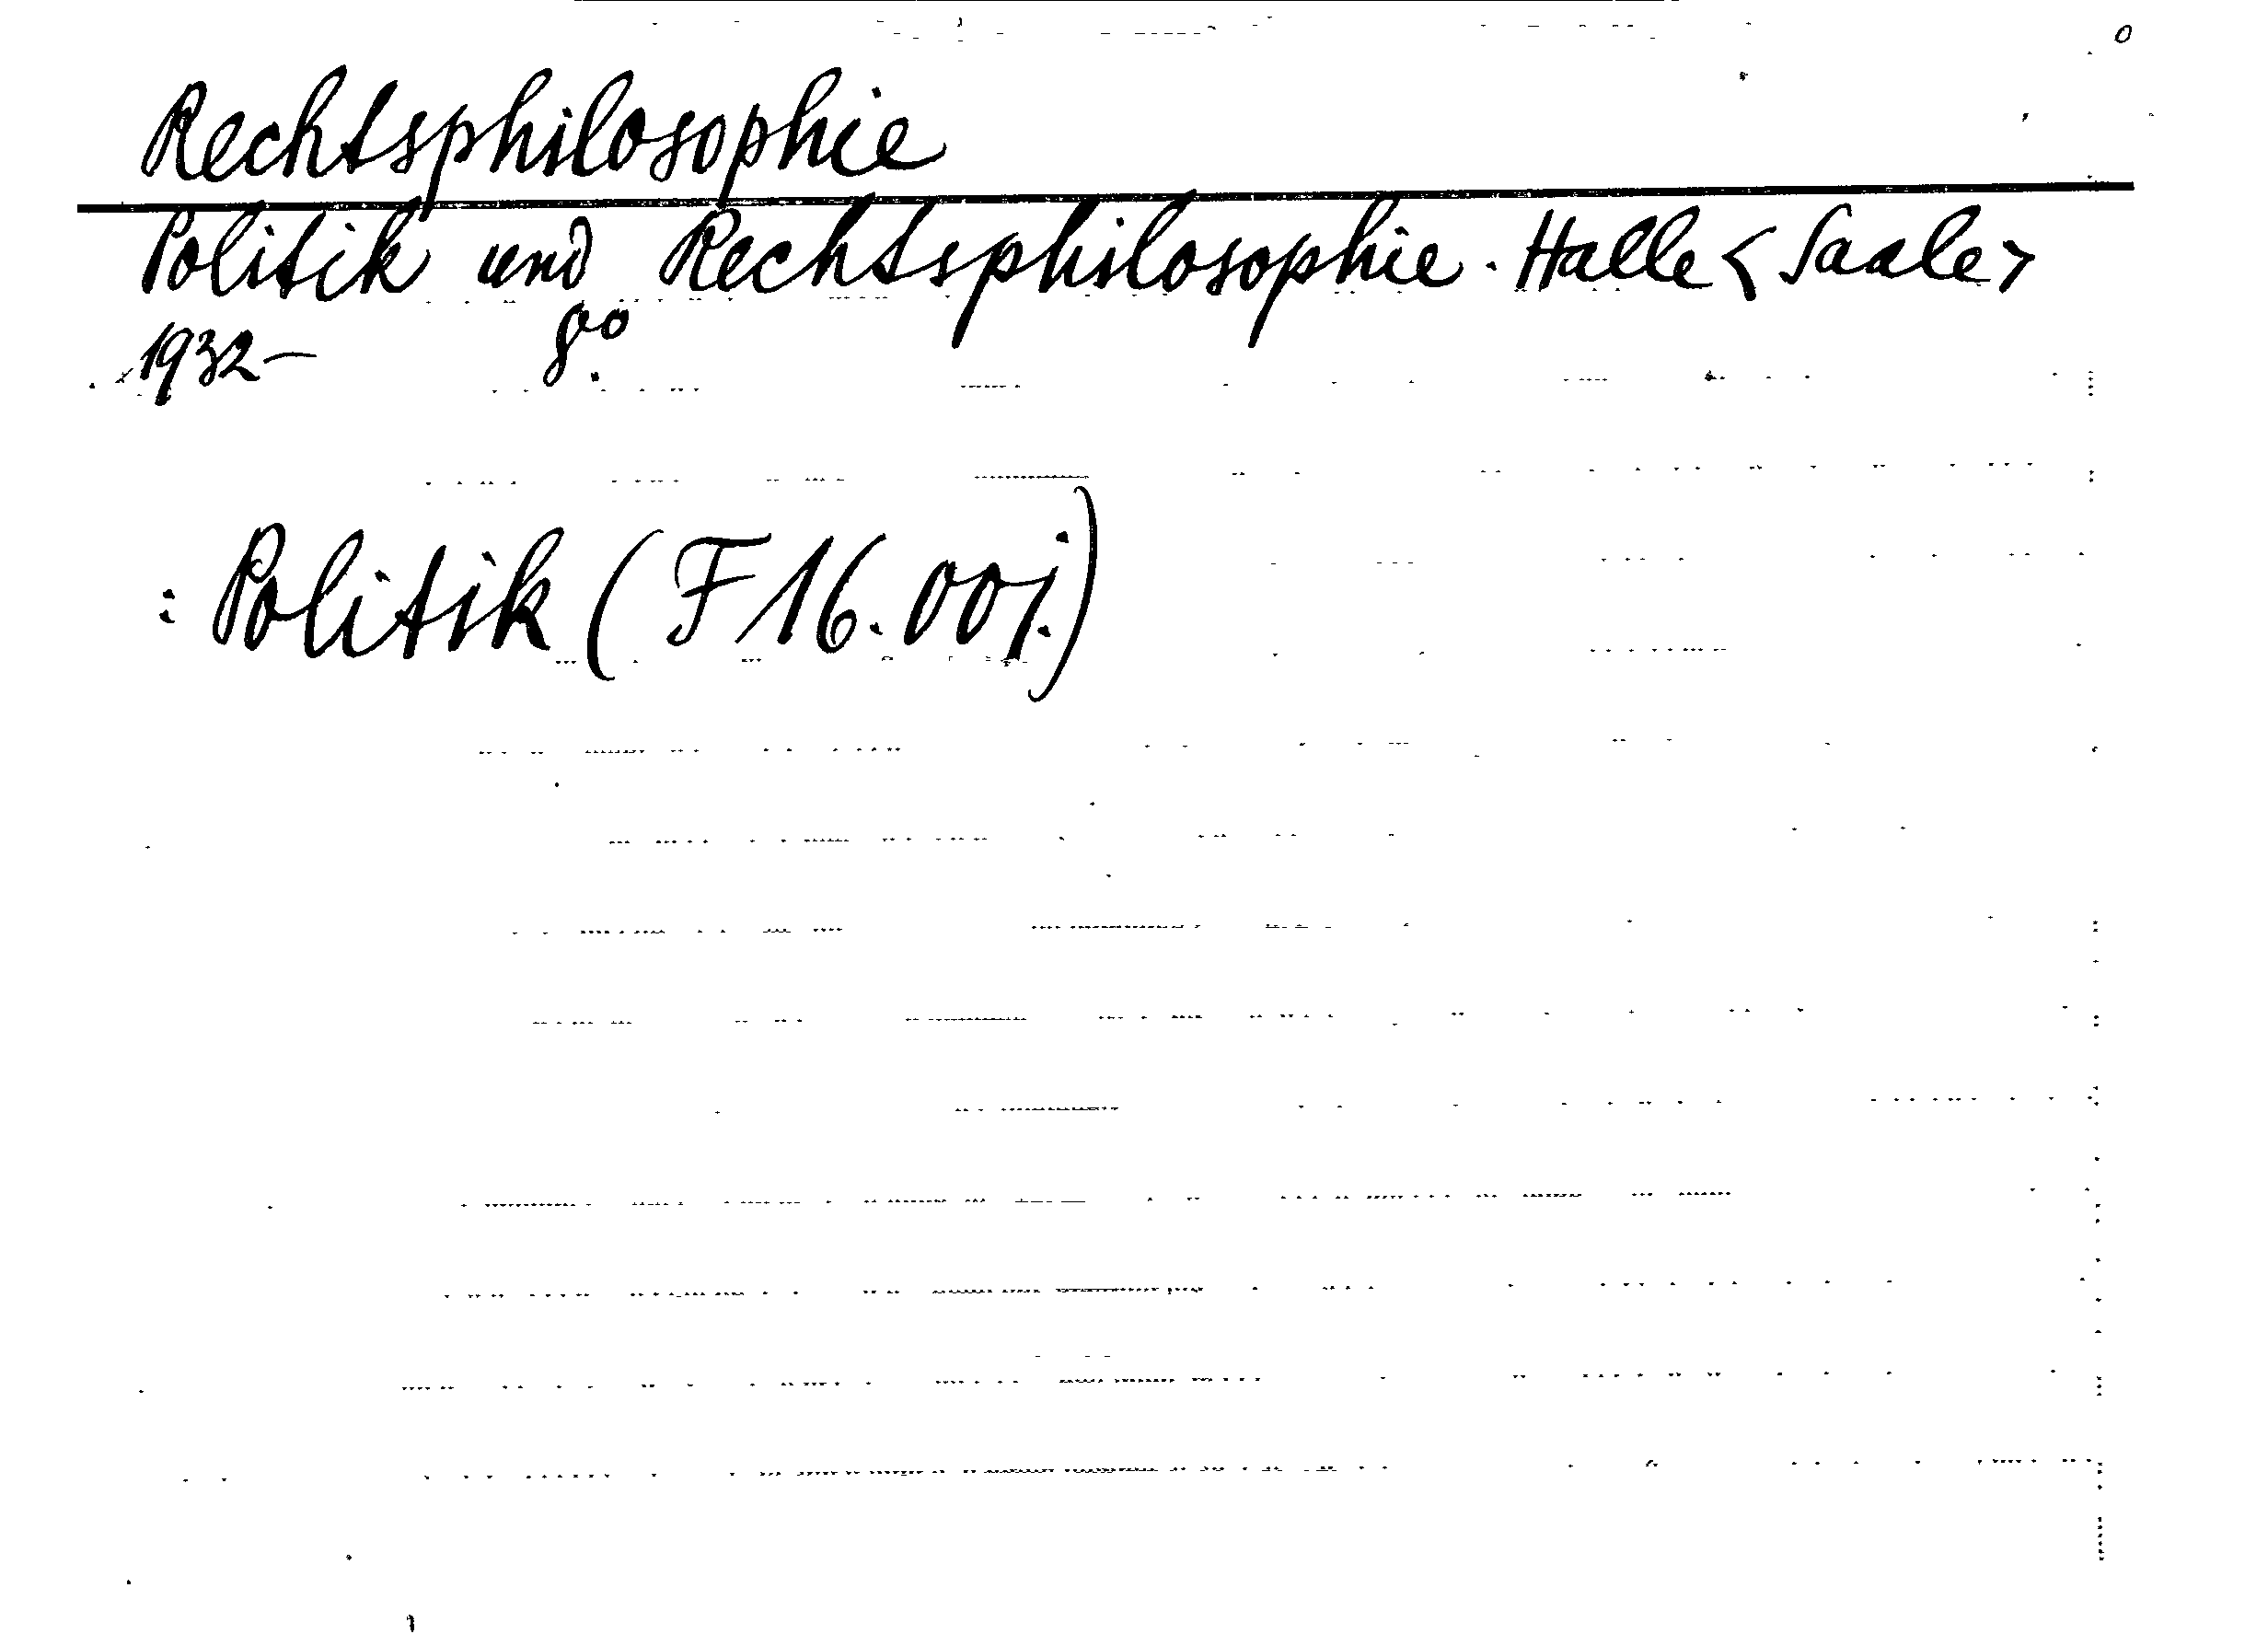 Rechtsphilosophie
Politik und Rechtsphilosophie. Halle <Saale>
1932- 8°.
: Politik (F 16.00j.)